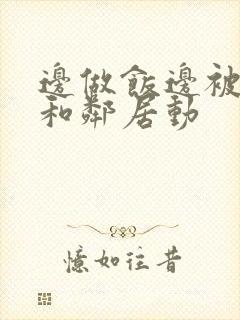 邊做飯邊被
和鄰居動
憶如往昔